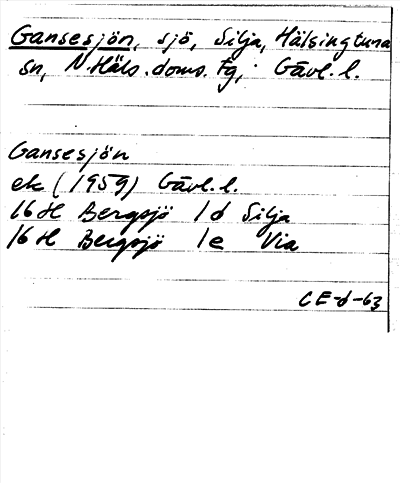 Gansesjön, sjö, Silja, Hälsingtuna
sn, N. Häls. doms. tg, Gävl. l.
Gansesjön
ek (1959) Gävl. l.
16 H Bergsjö 1 d Silja
16 H Bergsjö 1 e Via
CE-d-63